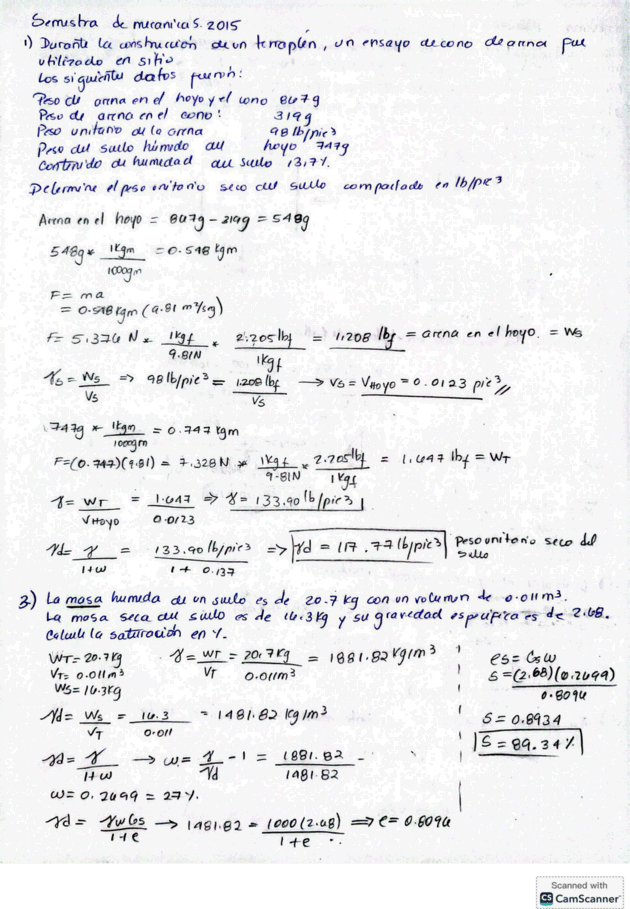 Semestra de mecanica S. 2015
1) Durante la construcción de un terraplén, un ensayo de cono de arena fue
utilizado en sitio
Los siguientes datos fueron:
Peso de arena en el hoyo y el cono 867g
Peso de arena en el cono: 319g
Peso unitario de la arena 98 lb/pie³
Peso del suelo húmedo del hoyo 747g
Contenido de humedad del suelo 13,7%.
Determine el peso unitario seco del suelo compactado en lb/pie³
Arena en el hoyo = 867g - 319g = 548g
548g * 1Kgm/1000gm = 0.548 Kgm
F = ma
= 0.548 Kgm (9.81 m²/seg)
F = 5.376 N * 1Kgf/9.81N * 2.205 lbf/1Kgf = 1.208 lbf = arena en el hoyo. = Ws
γs = Ws/Vs => 98 lb/pie³ = 1.208 lbf/Vs → Vs = VHoyo = 0.0123 pie³
747g * 1Kgm/1000gm = 0.747 Kgm
F = (0.747)(9.81) = 7.328 N * 1Kgf/9.81N * 2.205 lbf/1Kgf = 1.647 lbf = WT
γ = WT/VHoyo = 1.647/0.0123 => γ = 133.90 lb/pie³
γd = γ/1+ω = 133.90 lb/pie³/1 + 0.137 => γd = 117.77 lb/pie³ Peso unitario seco del
suelo
2) La masa humeda de un suelo es de 20.7 kg con un volumen de 0.011 m³.
La masa seca del suelo es de 16.3 kg y su gravedad especifica es de 2.68.
Calcule la saturación en %.
WT = 20.7 kg γ = WT/VT = 20.7 kg/0.011 m³ = 1881.82 kg/m³
VT = 0.011 m³
Ws = 16.3 kg
γd = Ws/VT = 16.3/0.011 = 1481.82 kg/m³
γd = γ/1+ω → ω = γ/γd - 1 = 1881.82/1481.82 -
ω = 0.2699 = 27%.
γd = γw Gs/1+e → 1481.82 = 1000(2.68)/1+e => e = 0.8096
es = Gsω
S = (2.68)(0.2699)/0.8096
S = 0.8934
S = 89.34%
Scanned with
CS CamScanner